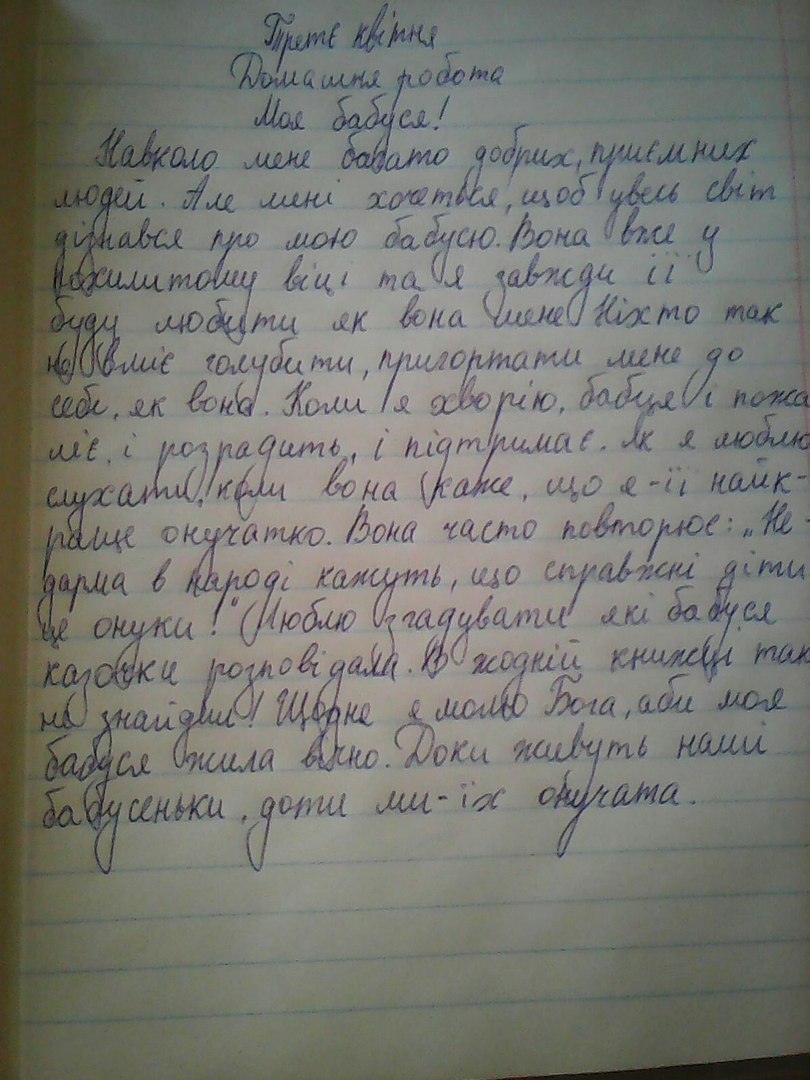 Третє квітня
Домашня робота
Моя бабуся!
Навколо мене багато добрих, приємних
людей. Але мені хочеться, щоб увесь світ
дізнався про мою бабусю. Вона вже у
похилитому віці та я завжди її
буду любити як вона мене Ніхто так
не вміє голубити, пригортати мене до
себе, як вона. Коли я хворію, бабця і пожа
ліє, і розрадить, і підтримає. Як я люблю
слухати, коли вона каже, що я-її найк-
раще онучатко. Вона часто повторює: „Не-
дарма в народі кажуть, що справжні діти
це онуки!" Люблю згадувати які бабуся
казочки розповідала. В жодній книжці так
не знайдеш! Щодне я молю Бога, аби моя
бабуся жила вічно. Доки живуть наші
бабусеньки, доти ми-їх онучата.